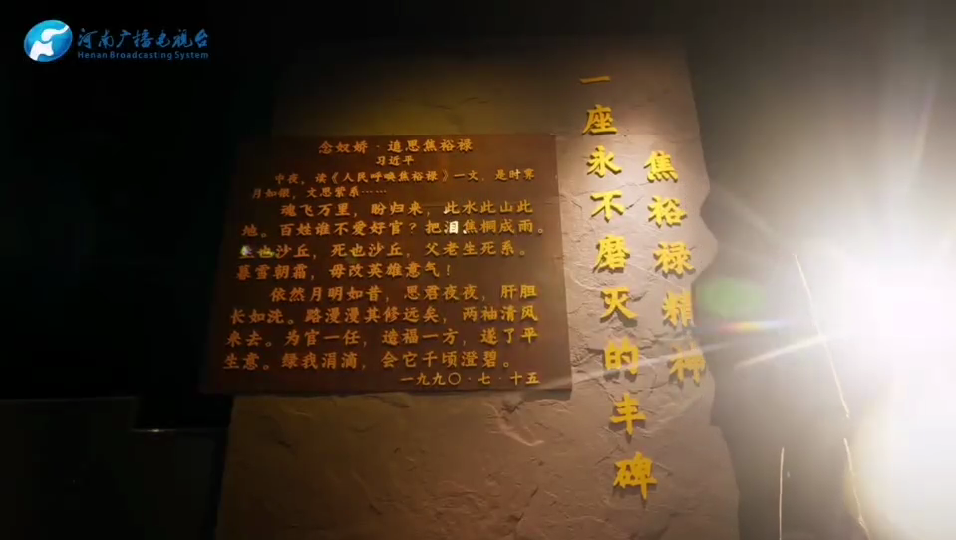 河南广播电视台
Henan Broadcasting System
念奴娇·追思焦裕禄
习近平
中夜，读《人民呼唤焦裕禄》一文，是时霁
月如银，文思萦系……
魂飞万里，盼归来，此水此山此
地。百姓谁不爱好官？把泪焦桐成雨。
生也沙丘，死也沙丘，父老生死系。
暮雪朝霜，毋改英雄意气！
依然月明如昔，思君夜夜，肝胆
长如洗。路漫漫其修远矣，两袖清风
来去。为官一任，造福一方，遂了平
生意。绿我涓滴，会它千顷澄碧。
一九九〇·七·十五
焦裕禄精神
一座永不磨灭的丰碑